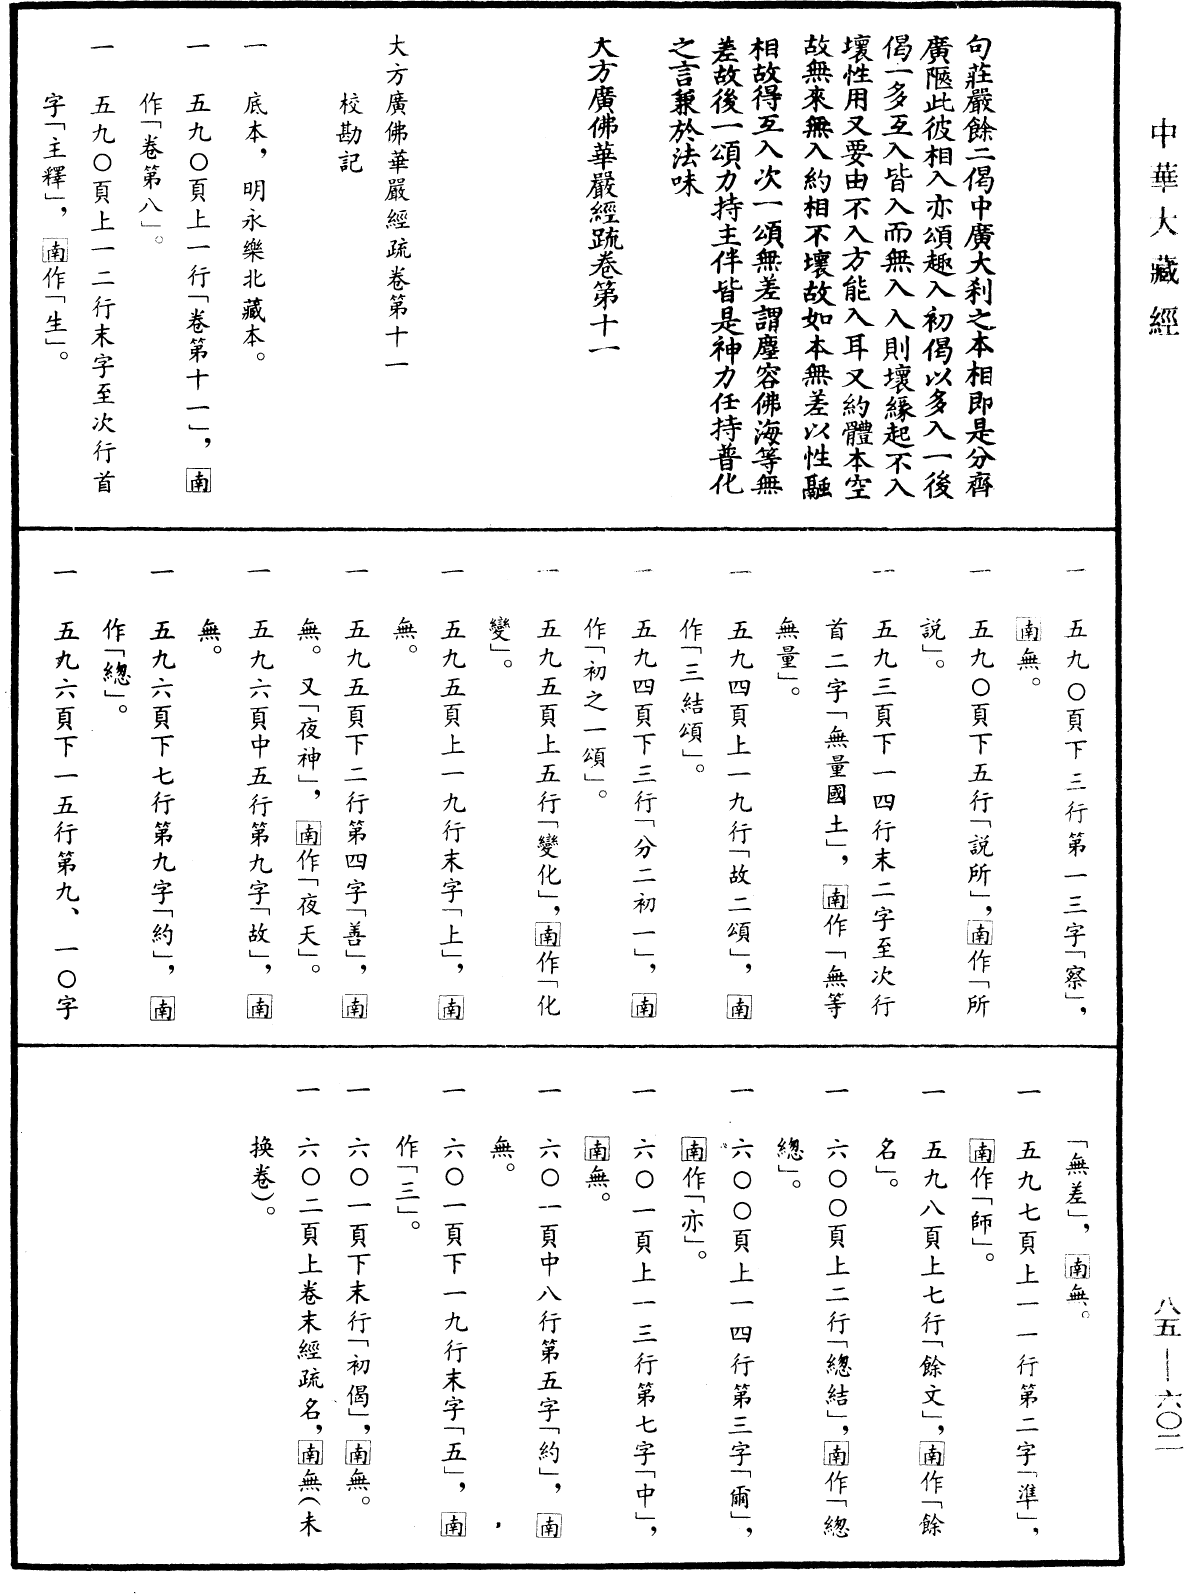 中華大藏經
句莊嚴餘二偈中廣大刹之本相即是分齊
廣陿此彼相入亦頌趣入初偈以多入一後
偈一多互入皆入而無入入則壞緣起不入
壞性用又要由不入方能入耳又約體本空
故無來無入約相不壞故如本無差以性融
相故得互入次一頌無差謂塵容佛海等無
差故後一頌力持主伴皆是神力任持普化
之言兼於法味
大方廣佛華嚴經䟽卷第十一
大方廣佛華嚴經疏卷第十一
校勘記
一　底本，明永樂北藏本。
一　五九〇頁上一行「卷第十一」，南
作「卷第八」。
一　五九〇頁上一二行末字至次行首
字「主釋」，南作「生」。
一　五九〇頁下三行第一三字「察」，
南無。
一　五九〇頁下五行「説所」，南作「所
説」。
一　五九三頁下一四行末二字至次行
首二字「無量國土」，南作「無等
無量」。
一　五九四頁上一九行「故二頌」，南
作「三結頌」。
一　五九四頁下三行「分二初一」，南
作「初之一頌」。
一　五九五頁上五行「變化」，南作「化
變」。
一　五九五頁上一九行末字「上」，南
無。
一　五九五頁下二行第四字「善」，南
無。又「夜神」，南作「夜天」。
一　五九六頁中五行第九字「故」，南
無。
一　五九六頁下七行第九字「約」，南
作「總」。
一　五九六頁下一五行第九、一〇字
「無差」，南無。
一　五九七頁上一一行第二字「準」，
南作「師」。
一　五九八頁上七行「餘文」，南作「餘
名」。
一　六〇〇頁上二行「總結」，南作「總
總」。
一　六〇〇頁上一四行第三字「爾」，
南作「亦」。
一　六〇一頁上一三行第七字「中」，
南無。
一　六〇一頁中八行第五字「約」，南
無。
一　六〇一頁下一九行末字「五」，南
作「三」。
一　六〇一頁下末行「初偈」，南無。
一　六〇二頁上卷末經疏名，南無（未
换卷）。
八五—六〇二